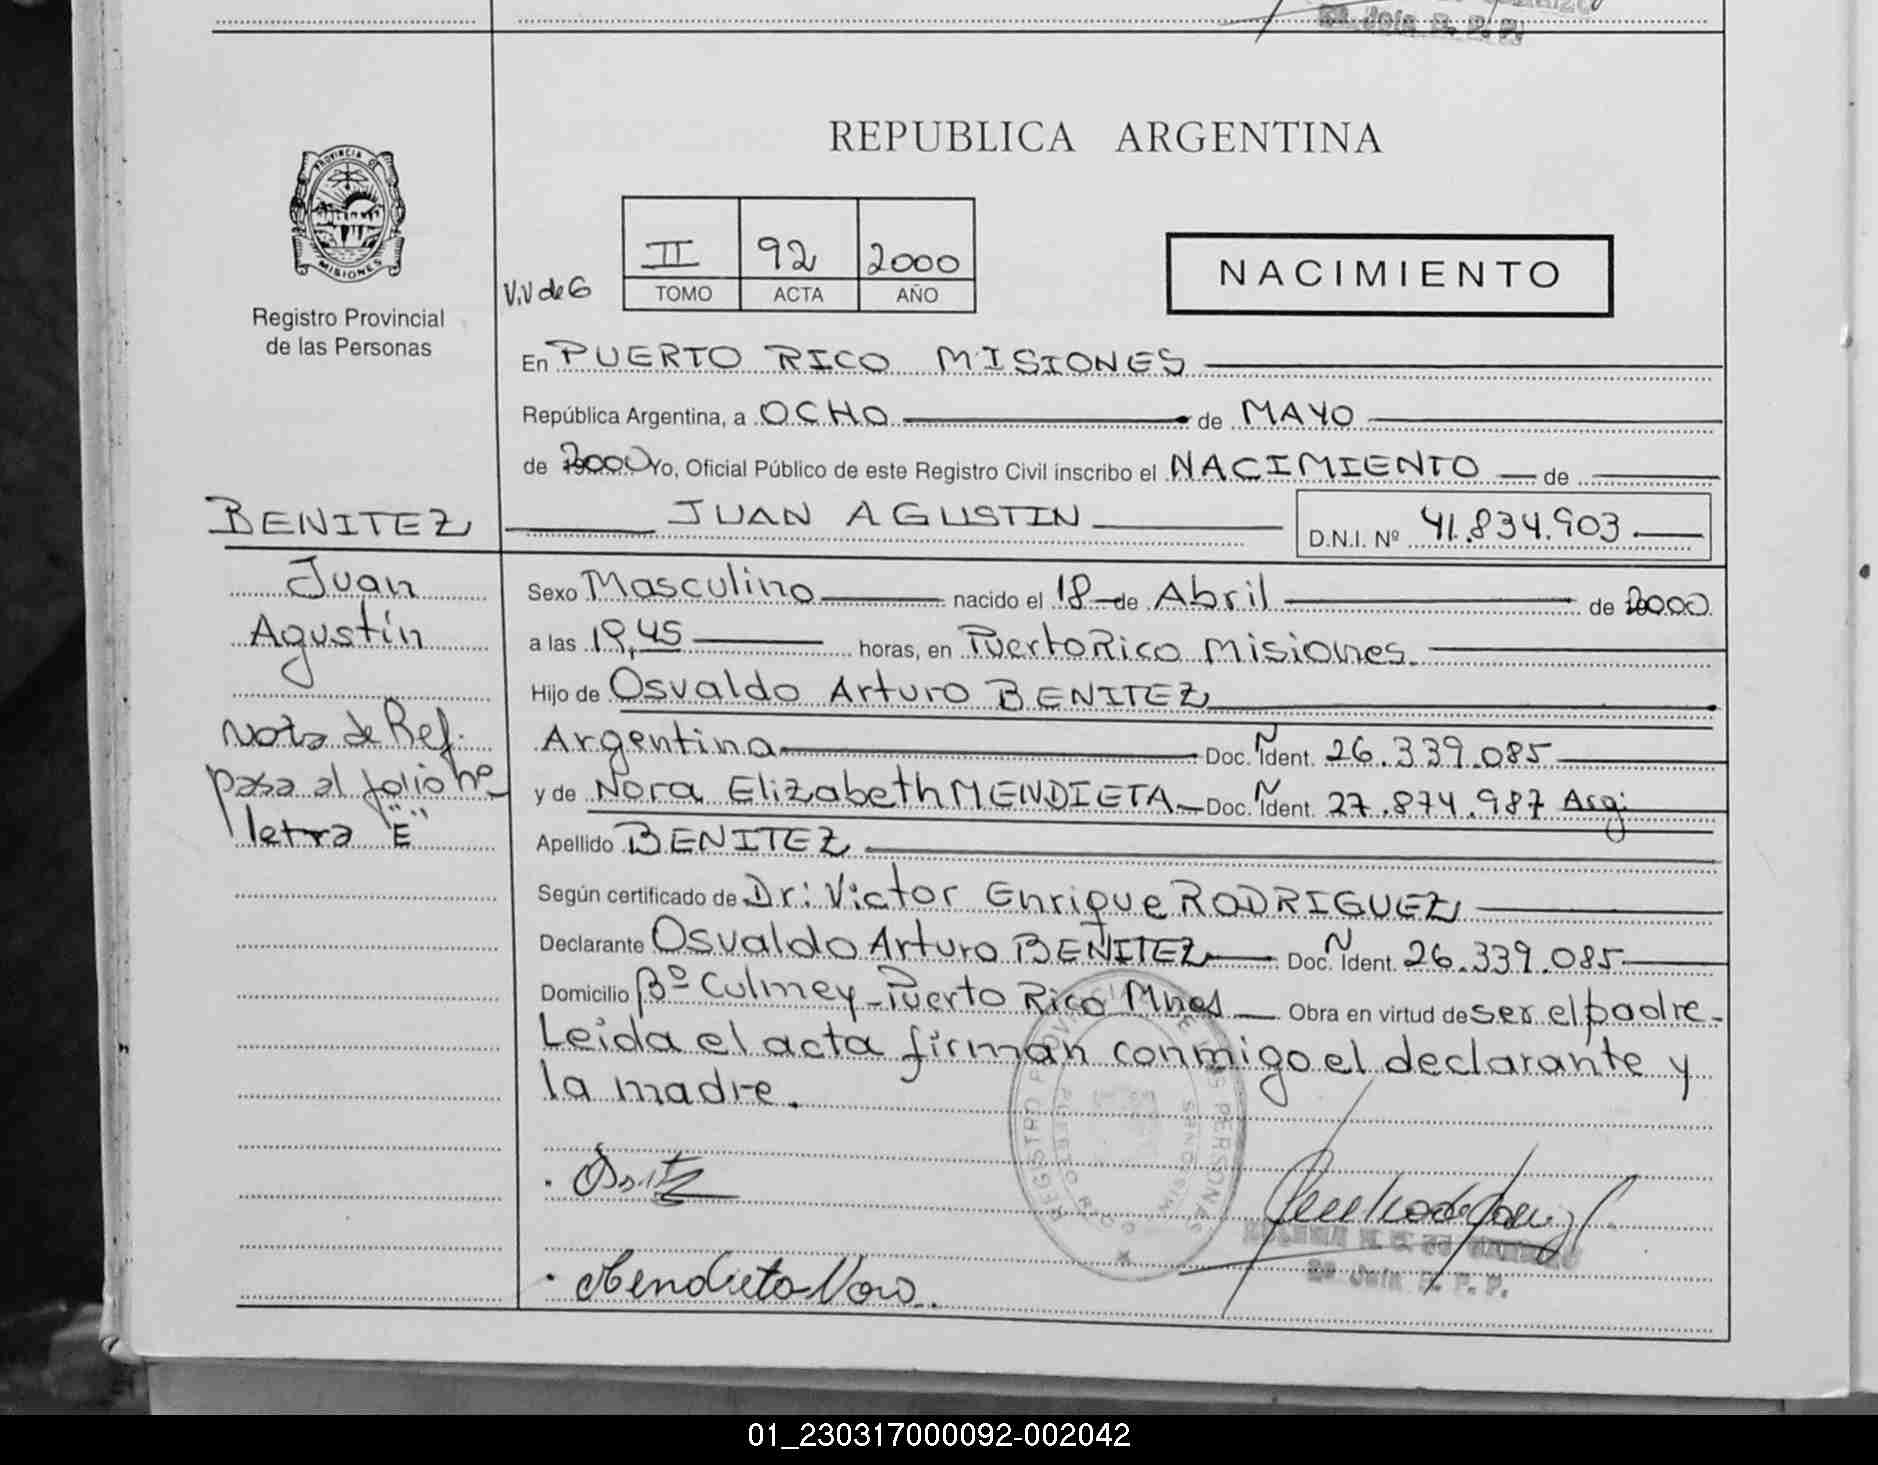 2do Jefe R. P. P.
REPUBLICA ARGENTINA
PROVINCIA D
MISIONES
Registro Provincial
de las Personas
II 92 2000
TOMO ACTA AÑO
V.V de G
NACIMIENTO
En PUERTO RICO MISIONES
República Argentina, a OCHO de MAYO
de 2000 Yo, Oficial Público de este Registro Civil inscribo el NACIMIENTO de
BENITEZ
JUAN AGUSTIN D.N.I. Nº 41.834.903
Juan
Agustín
Nota de Ref.
pasa al folio nº
letra "E"
Sexo Masculino nacido el 18 de Abril de 2000
a las 19,45 horas, en Puerto Rico Misiones.
Hijo de Osvaldo Arturo BENITEZ
Argentina Doc. N Ident. 26.339.085
y de Nora Elizabeth MENDIETA Doc. N Ident. 27.874.987 Arg.
Apellido BENITEZ
Según certificado de Dr: Victor Enrique RODRIGUEZ
Declarante Osvaldo Arturo BENITEZ Doc. N Ident. 26.339.085
Domicilio Bº Culmey-Puerto Rico Mnes Obra en virtud de ser el padre.
Leida el acta firman conmigo el declarante y
la madre.
REGISTRO PROVINCIAL DE LAS PERSONAS
PUERTO RICO MISIONES
Mendieta Nora.
2do Jefe R. P. P.
01_230317000092-002042